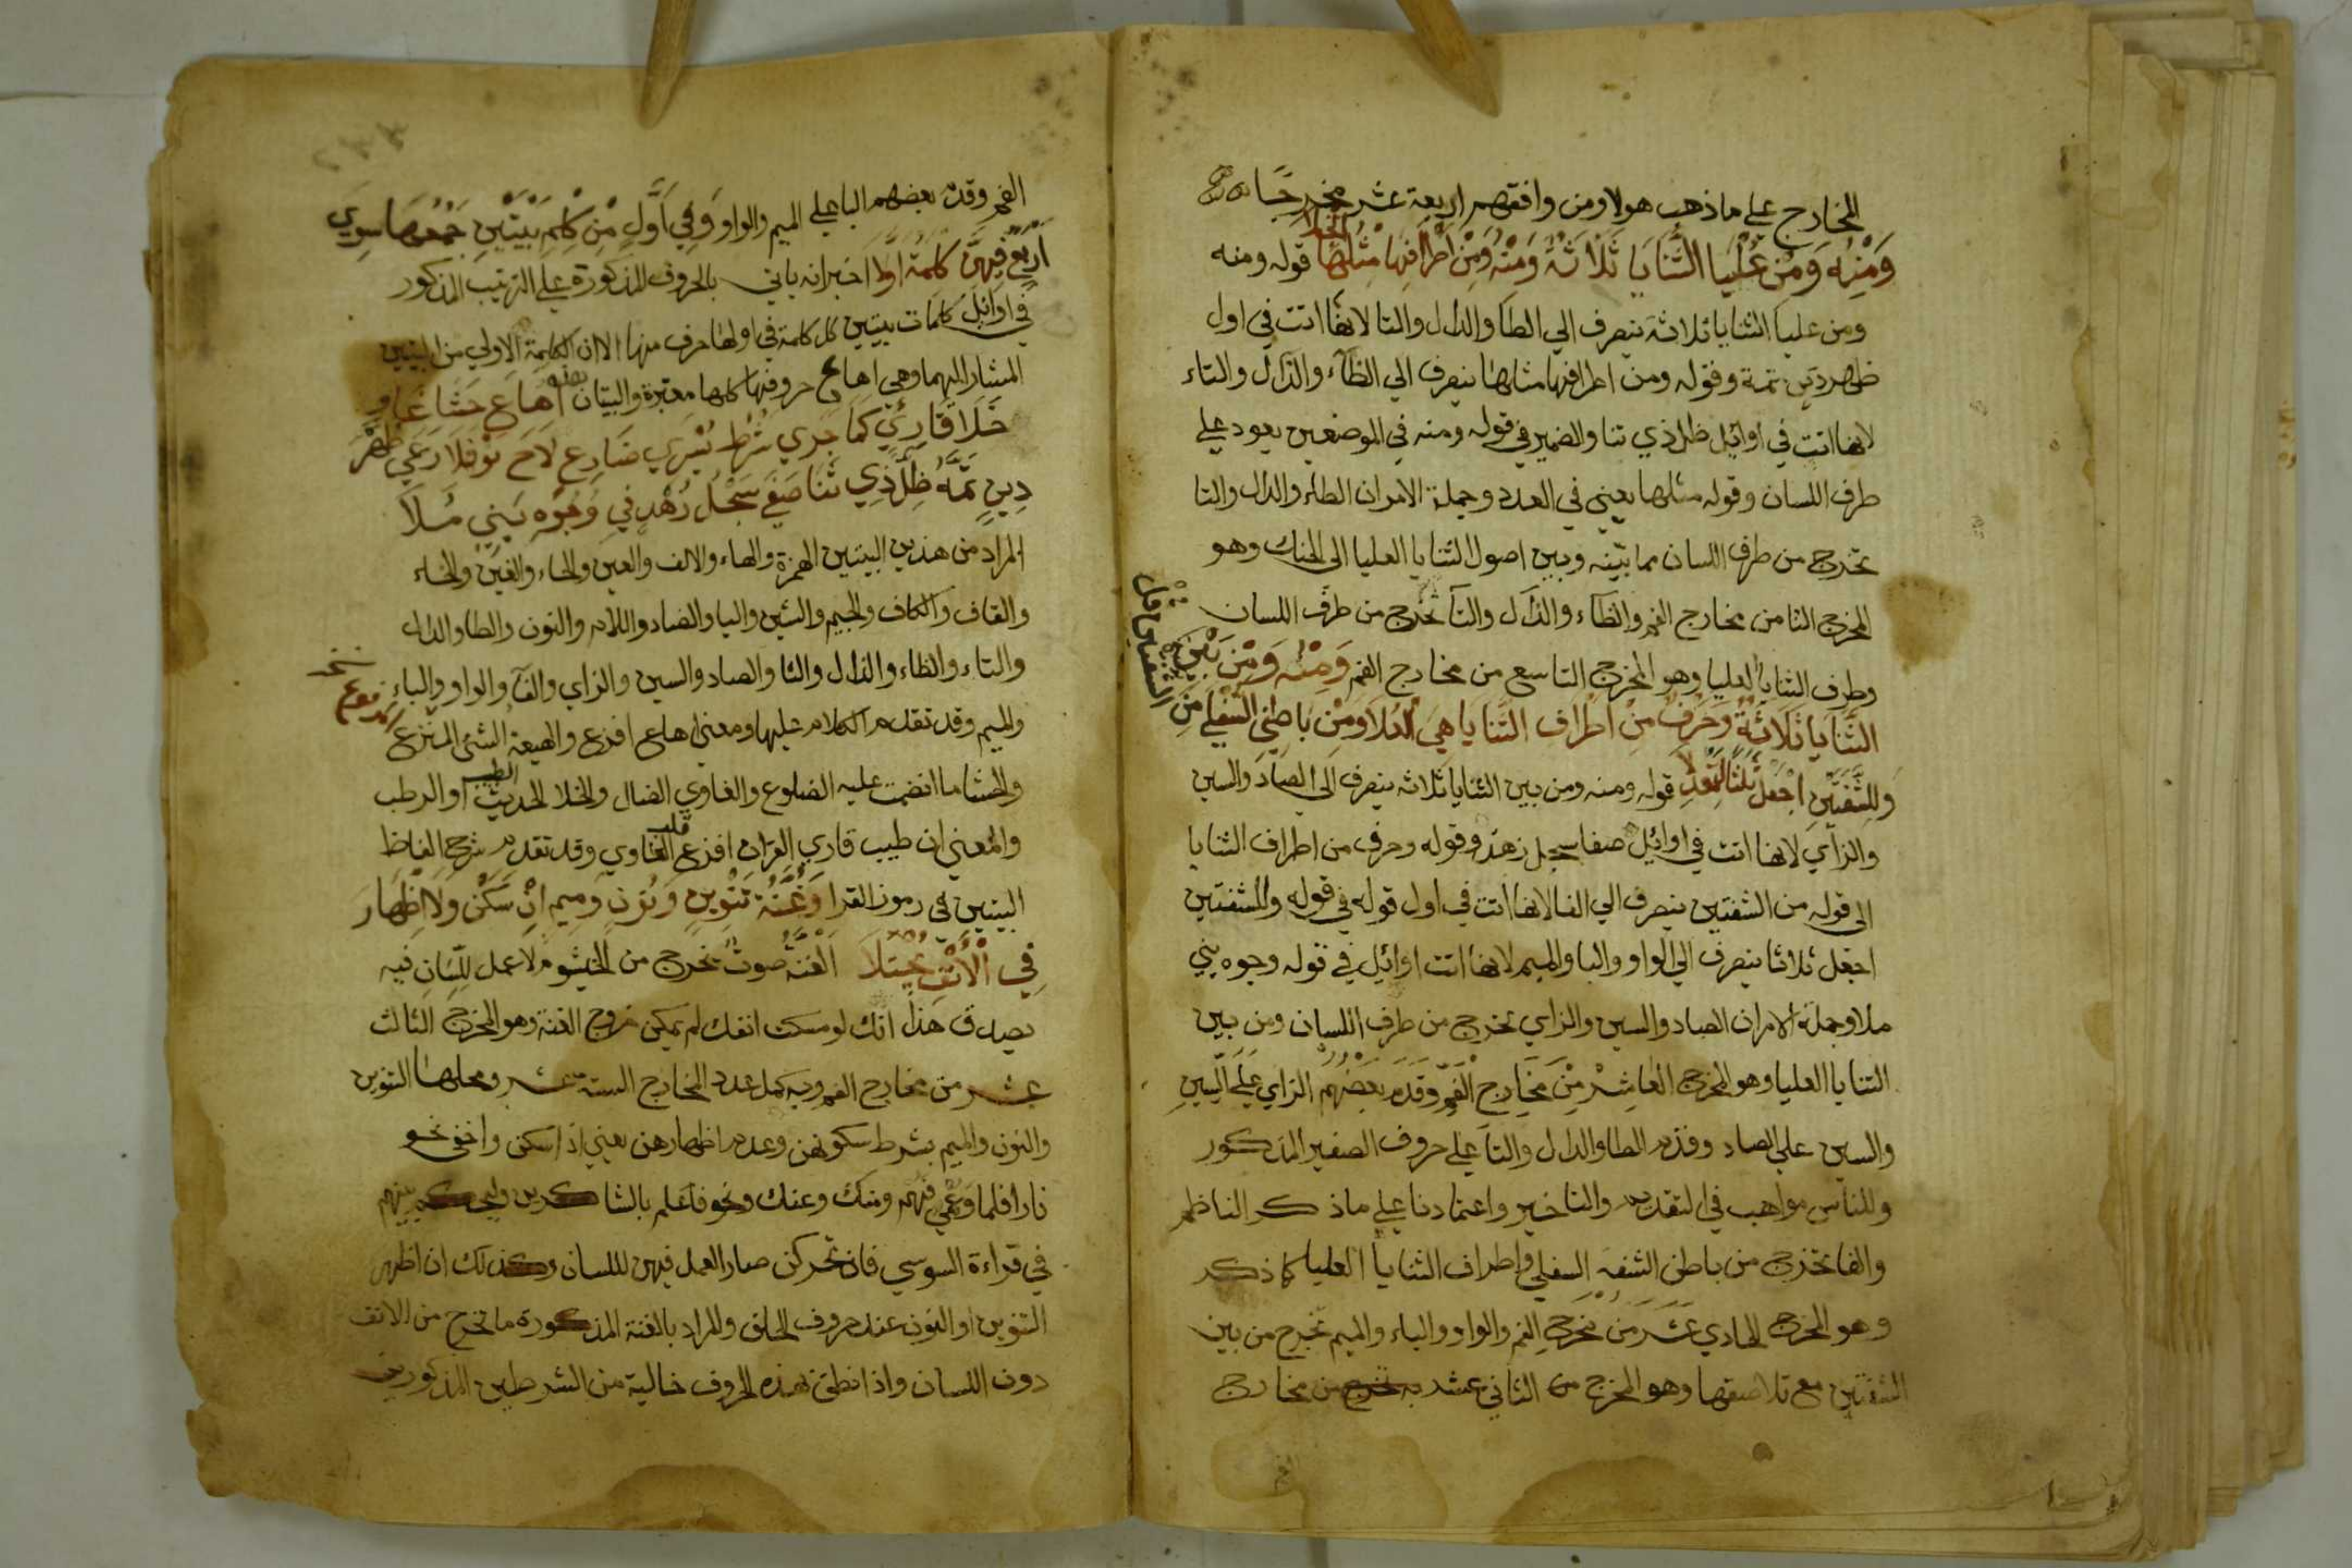 المخارج علي ما ذهب هولا ومن وافقهم اربعة عشر مخرجا
وَمِنْهُ وَمِنْ عُلْيَا الثَّنَايَا ثَلَاثَةٌ وَمِنْهُ وَمِنْ اَطْرَافِهَا مِثْلُهَا انجلا قوله ومنه
ومن عليا الثنايا ثلاثة ينصرف الي الطا والدال والتا لانها اتت في اول
طهر دين تمة وقوله ومن اطرافها مثلها ينصرف الي الظآء والذال والثاء
لانها اتت في اوائل ظل ذي ثنا والضمير في قوله ومنه في الموضعين يعود علي
طرف اللسان وقوله مثلها يعني في العدد وجملة الامر ان الطاء والدال والتا
تخرج من طرف اللسان مما بينه وبين اصول الثنايا العليا الى الحنك وهو
المخرج الثامن من مخارج الفم والظآء والذال والثا تخرج من طرف اللسان
وطرف الثنايا العليا وهو المخرج التاسع من مخارج الفم وَمِنْهُ وَمِنْ بَيْنِ
الثَّنَايَا ثَلَاثَةٌ وَحَرْفٌ مِنْ اَطْرَافِ الثَّنَايَا هِيَ الْعُلَا وَمِنْ بَاطِنِ السُّفْلَى مِنَ
الشفتين قل
وَلِلشَّفَتَيْنِ اجْعَلْ ثَلَاثًا لِتَعْدِلَا قوله ومنه ومن بين الثنايا ثلاثة ينصرف الى الصاد والسين
والزاي لانها اتت في اوائل صفا سجل زهد وقوله وحرف من اطراف الثنايا
الى قوله من الشفتين ينصرف الي الفا لانها اتت في اول قوله في قوله وللشفتين
اجعل ثلاثا ينصرف الى الواو والبا والميم لانها اتت اوائل في قوله وجوه بني
ملا وجملة الامر ان الصاد والسين والزاي تخرج من طرف اللسان ومن بين
الثنايا العليا وهو المخرج العَاشِرْ مِنْ مَخَارِج الْفَمِ وَقَدَّم بَعْضُهُم الزاي عَلَى السِّينِ
والسين علي الصاد وقدم الطا والدال والتا علي حروف الصفير المذكور
وللناس مواهب في التقديم والتاخير واعتمادنا علي ما ذكر الناظم
والفا تخرج من باطن الشفة السفلي واطراف الثنايا العليا كما ذكر
وهو المخرج الحادي عَشَرَ مِنْ مَخْرَج الفم والواو والباء والميم تخرج من بين
الشفتين مع تلاصقها وهو المخرج الثاني عشر من مخارج
الفم وقدم بعضهم الباعلي الميم والواو وَفِي اَوَّلٍ مِنْ كِلْمِ بَيْتَيْنِ جَمْعُهَا سِوَى
اَرْبَعٍ فِيهِنَّ كِلْمَةٌ اوَّلا اخبرانه ياتي بالحروف المذكورة علي الترتيب المذكور
في اوائل كلمات بيتين كل كلمة في اولها حرف منها الا ان الكلمة الاولي من البيتين
المشار اليهما وهي اهاع حروفها كلها معتبرة والبيتان اَهَاعَ حَشَا غَاوٍ
خَلَا قَارِئٍ كَمَا جَرَي شَرْطُ يُسْرَي ضَارِعٍ لَاحَ نَوْفَلَا رَعَي طُهْرَ
دِينٍ تَمَّهُ ظِلُّ ذِي ثَنَا صَفَي سَجْلُ زُهْدٍ فِي وُجُوهِ بَنِي مَلَا
المراد من هذين البيتين الهمزة والهاء والالف والعين والحاء والغين والخاء
والقاف والكاف والجيم والشين واليا والضاد واللام والنون والطا والدال
والتاء والظاء والذال والثا والصاد والسين والزاي والفآ والواو والباء
والميم وقد تقدم الكلام عليها ومعني اهاع افزع والهيعة الشي المفزع
والحشا ما انضمت عليه الضلوع والغاوي الضال والخلا الحديث الطيب او الرطب
والمعني ان طيب قاري القران افزع قلب الغاوي وقد تقدم شرح الفاظ
البيتين في رموز القرا وَغُنَّةُ تَنْوِينٍ وَنُونٍ وَمِيمٍ اِنْ سَكَنَّ وَلَا اِظْهَارَ
فِي الْاَنْفِ يُجْتَلَا الغنة صوت يخرج من الخيشوم لا عمل للِّسَانِ فيه
يصدق هذا انك لو مسكت انفك لم يمكن خروج الغنة وهو المخرج الثالث
عشر من مخارج الفم وبه كمل عدد المخارج الستة عشر ومحلها التنوين
والنون والميم بشرط سكونهن وعدم اظهارهن يعني اذا سكن واخفي نحو
نارا فلما وعمي فهم ومنك وعنك ونحو فاعلم بالشاكرين بينهم
في قراءة السوسي فان تحركن صار العمل فيهن لللسان وكذلك ان اظهر
التنوين او النون عند حروف الحلق والمراد بالغنة المذكورة ما تخرج من الانف
دون اللسان واذا نطق بهذه الحروف خالية من الشرطين المذكورين